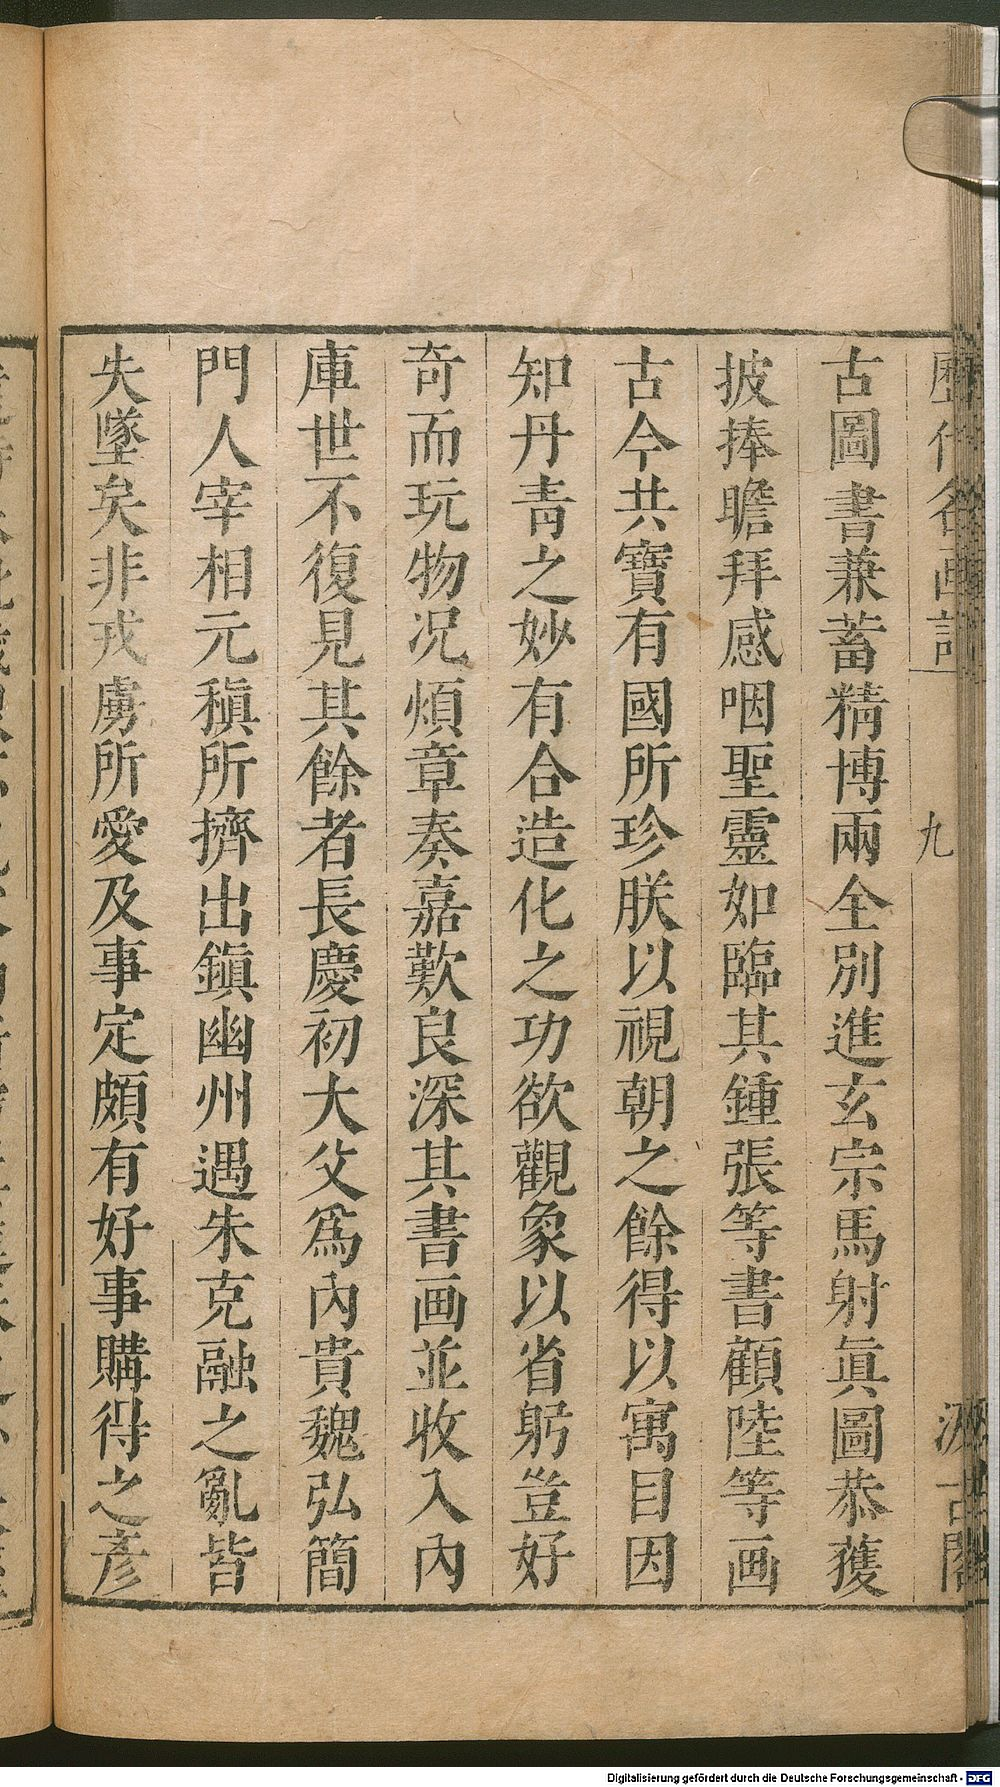 歷代名画記
九
汲古閣
古圖書兼蓄精博兩全別進玄宗馬射眞圖恭獲
披捧瞻拜感咽聖靈如臨其鍾張等書顧陸等画
古今共寶有國所珍朕以視朝之餘得以寓目因
知丹青之妙有合造化之功欲觀象以省躬豈好
奇而玩物况煩章奏嘉歎良深其書画並收入內
庫世不復見其餘者長慶初大父爲內貴魏弘簡
門人宰相元稹所擠出鎭幽州遇朱克融之亂皆
失墜矣非戎虜所愛及事定頗有好事購得之彥
Digitalisierung gefördert durch die Deutsche Forschungsgemeinschaft - DFG